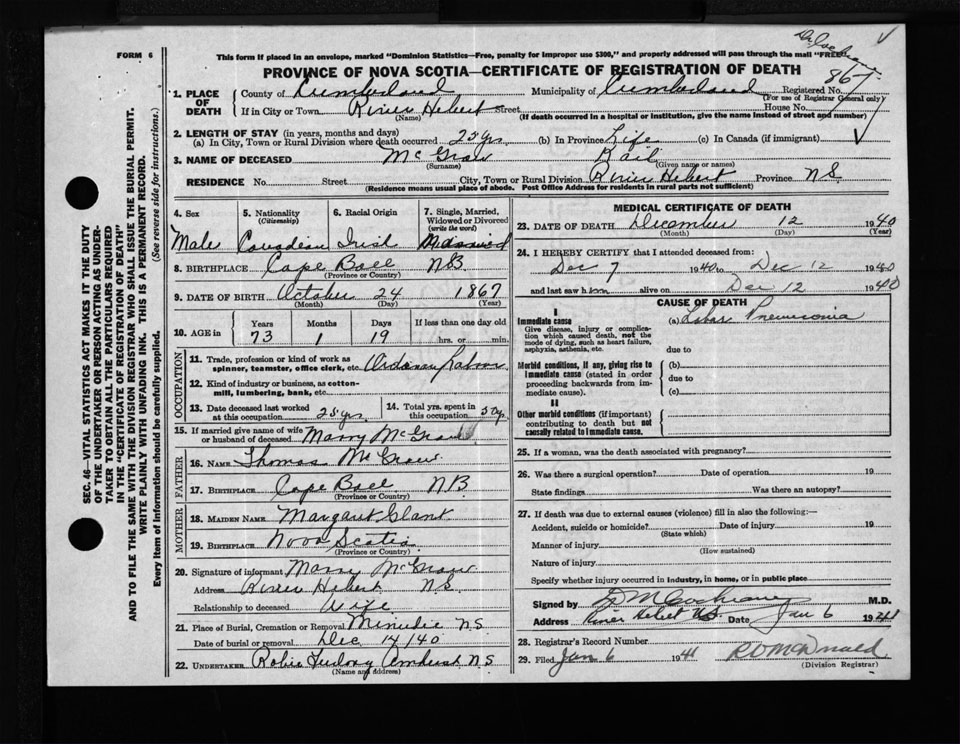 FORM 6
This form if placed in an envelope, marked "Dominion Statistics—Free, penalty for improper use $300," and properly addressed will pass through the mail "FREE"
PROVINCE OF NOVA SCOTIA—CERTIFICATE OF REGISTRATION OF DEATH
867
1. PLACE OF DEATH County of Cumberland Municipality of Cumberland Registered No.
(For use of Registrar General only)
If in City or Town River Hebert Street House No.
(Name) (If death occurred in a hospital or institution, give the name instead of street and number)
2. LENGTH OF STAY (in years, months and days)
(a) In City, Town or Rural Division where death occurred 25 yrs (b) In Province Life (c) In Canada (if immigrant)
3. NAME OF DECEASED McGraw
(Surname) (Given name or names)
RESIDENCE No. Street City, Town or Rural Division River Hebert Province N.S.
(Residence means usual place of abode. Post Office Address for residents in rural parts not sufficient)
SEC. 46—VITAL STATISTICS ACT MAKES IT THE DUTY
OF THE UNDERTAKER OR PERSON ACTING AS UNDER-
TAKER TO OBTAIN ALL THE PARTICULARS REQUIRED
IN THE "CERTIFICATE OF REGISTRATION OF DEATH"
AND TO FILE THE SAME WITH THE DIVISION REGISTRAR WHO SHALL ISSUE THE BURIAL PERMIT.
WRITE PLAINLY WITH UNFADING INK. THIS IS A PERMANENT RECORD.
Every item of Information should be carefully supplied. (See reverse side for instructions.)
4. Sex 5. Nationality (Citizenship) 6. Racial Origin 7. Single, Married, Widowed or Divorced (write the word)
Male Canadian Irish
8. BIRTHPLACE Cape Bald NB
(Province or Country)
9. DATE OF BIRTH October 24 1867
(Month) (Day) (Year)
10. AGE in Years Months Days If less than one day old
73 1 19 hrs. or min.
OCCUPATION
11. Trade, profession or kind of work as spinner, teamster, office clerk, etc. Ordinary Labour
12. Kind of industry or business, as cotton-mill, lumbering, bank, etc.
13. Date deceased last worked at this occupation 25 yrs 14. Total yrs. spent in this occupation 50 y
15. If married give name of wife or husband of deceased Marry McGraw
FATHER
16. NAME Thomas McGraw
17. BIRTHPLACE Cape Bald NB
(Province or Country)
MOTHER
18. MAIDEN NAME Margaret
19. BIRTHPLACE Nova Scotia
(Province or Country)
20. Signature of informant Marry McGraw
Address River Hebert N.S.
Relationship to deceased Wife
21. Place of Burial, Cremation or Removal Minudie N.S.
Date of burial or removal Dec 14 1940
22. UNDERTAKER Amherst N.S.
(Name and Address)
MEDICAL CERTIFICATE OF DEATH
23. DATE OF DEATH December 12 1940
(Month) (Day) (Year)
24. I HEREBY CERTIFY that I attended deceased from:
Dec 7 1940 to Dec 12 1940
and last saw him alive on Dec 12 1940
CAUSE OF DEATH
I
Immediate cause (a) Lobar Pneumonia
Give disease, injury or complication which caused death, not the mode of dying, such as heart failure, asphyxia, asthenia, etc.
due to
Morbid conditions, if any, giving rise to Immediate cause (stated in order proceeding backwards from immediate cause). (b)
due to
(c)
II
Other morbid conditions (if important) contributing to death but not causally related to Immediate cause.
25. If a woman, was the death associated with pregnancy?
26. Was there a surgical operation? Date of operation 19
State findings Was there an autopsy?
27. If death was due to external causes (violence) fill in also the following:—
Accident, suicide or homicide? Date of injury 19
(State which)
Manner of injury
(How sustained)
Nature of injury
Specify whether injury occurred in industry, in home, or in public place
Signed by Cochrane M.D.
Address River Hebert N.S. Date Jan 6 1941
28. Registrar's Record Number
29. Filed Jan 6 1941 McDonald
(Division Registrar)